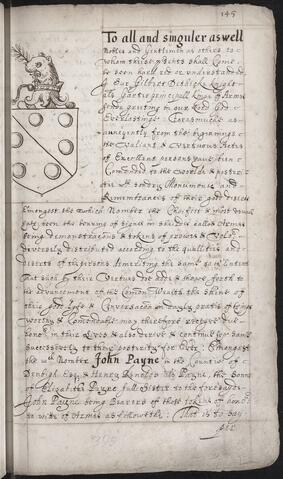 145
To all and singuler as well
Nobles and Gentlemen as others to
whom these presents shall Come
be seen heard red or understanded
Sr Gilbert Dethicke knight
als Garter principall kinge of Armes
sende greting in our Lord God
Everlastinge Forasmuche as
aunciently from the beginninge
the valiant & vertuous Actes
of Excellent persons have bien
Comended to the worlde & posteri
tie wth sondry Monuments and
Remembrances of their good deserts
Emongest the which Nomber the Chiefest & most usuall
hath been the bearing of Signes in shildes called Armes
being demonstracions & tokens of prowes & valor
diversely distributed according to the quallities and
deserts of the persons
that such as by their vertues do shewe forth to
the advancement of the Common Wealth the shine of
their good lyfe & Conversacion in dayly practis of things
worthy & Comendable may therefore
in their lives & derive & continue the same
Successively to their posteritie for Ever: Emongest
the wch Nomber John Payne in the Countie of
Denbigh Esq & Henry als Payne, the Sonne
of Elizabethe Payne full Sister to the foresaide
John Payne being Bearers of these tokens of honor
to wite of Armes as followethe: That is to say
per